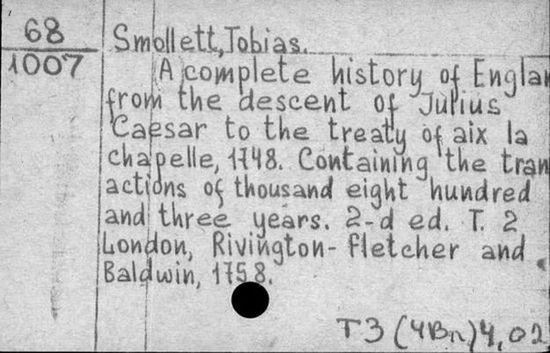 68
1007
Smollett, Tobias.
A complete history of Englan
from the descent of Julius
Caesar to the treaty of aix la
chapelle, 1748. Containing the tran
actions of thousand eight hundred
and three years. 2-d ed. T. 2
London, Rivington-Fletcher and
Baldwin, 1758.
T3 (4Вл)4,02